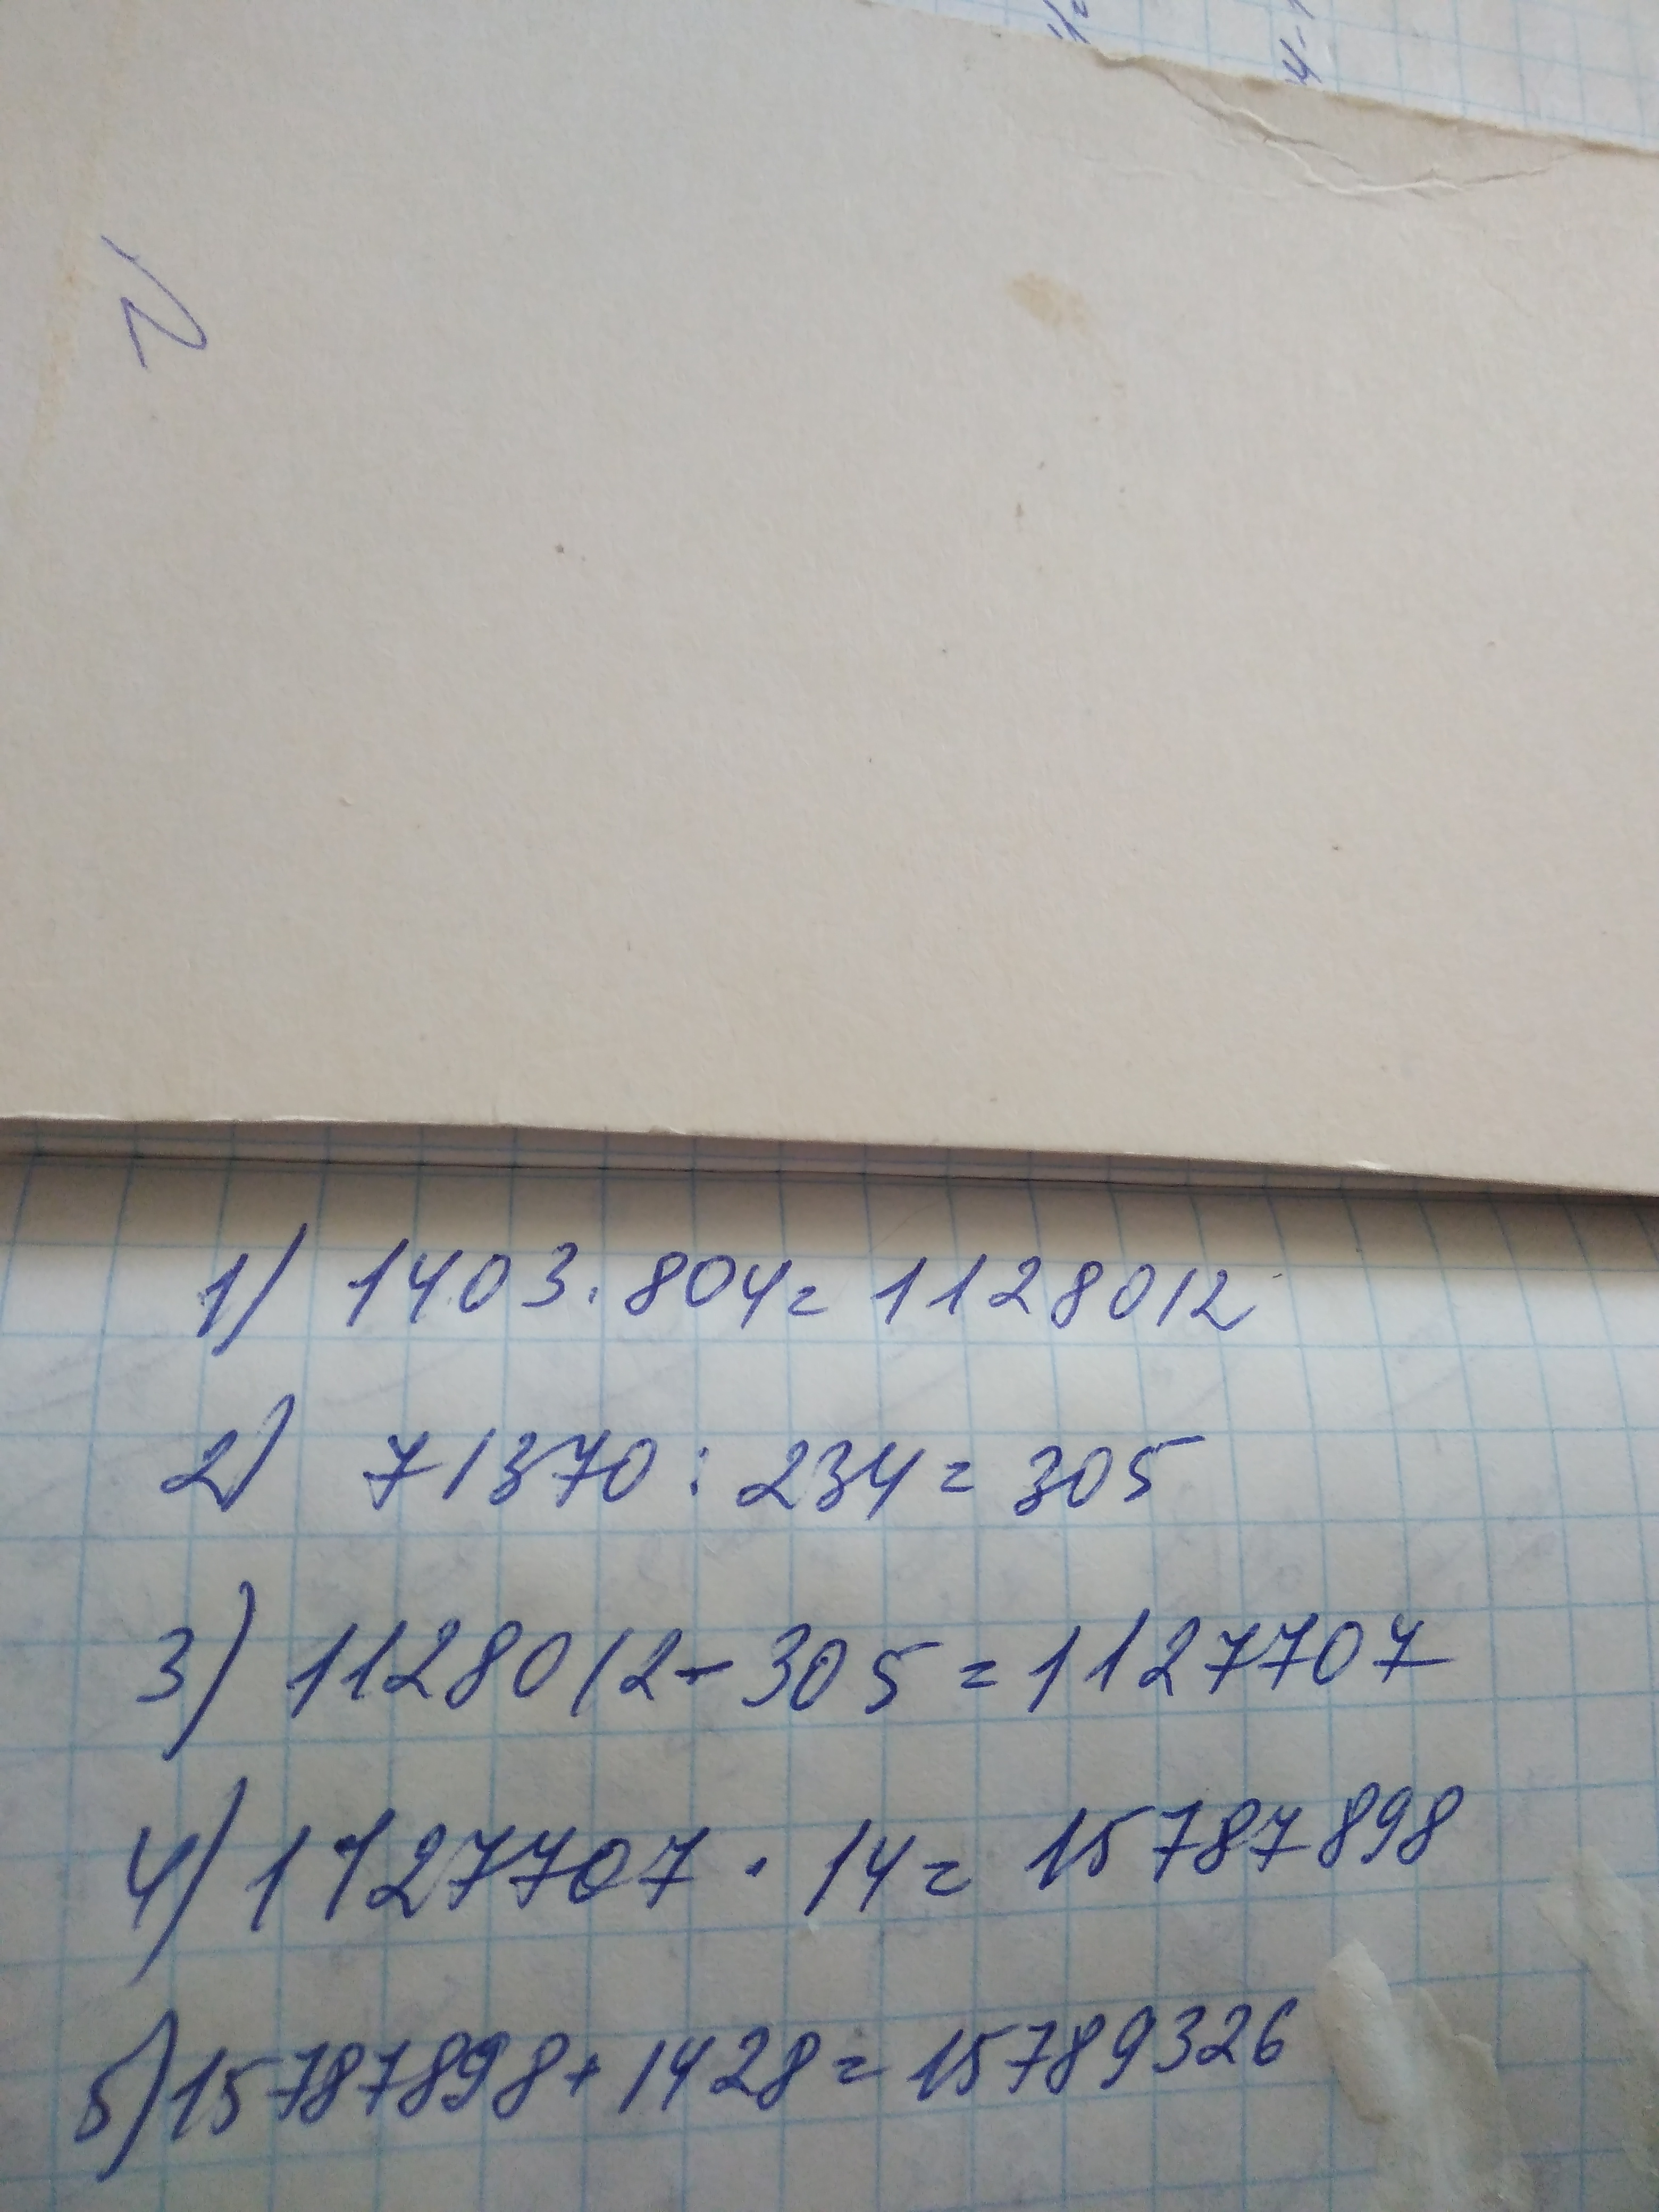 1) 1403 . 804 = 1128012
2) 71370 : 234 = 305
3) 1128012 - 305 = 1127707
4) 1127707 . 14 = 15787898
5) 15787898 + 1428 = 15789326